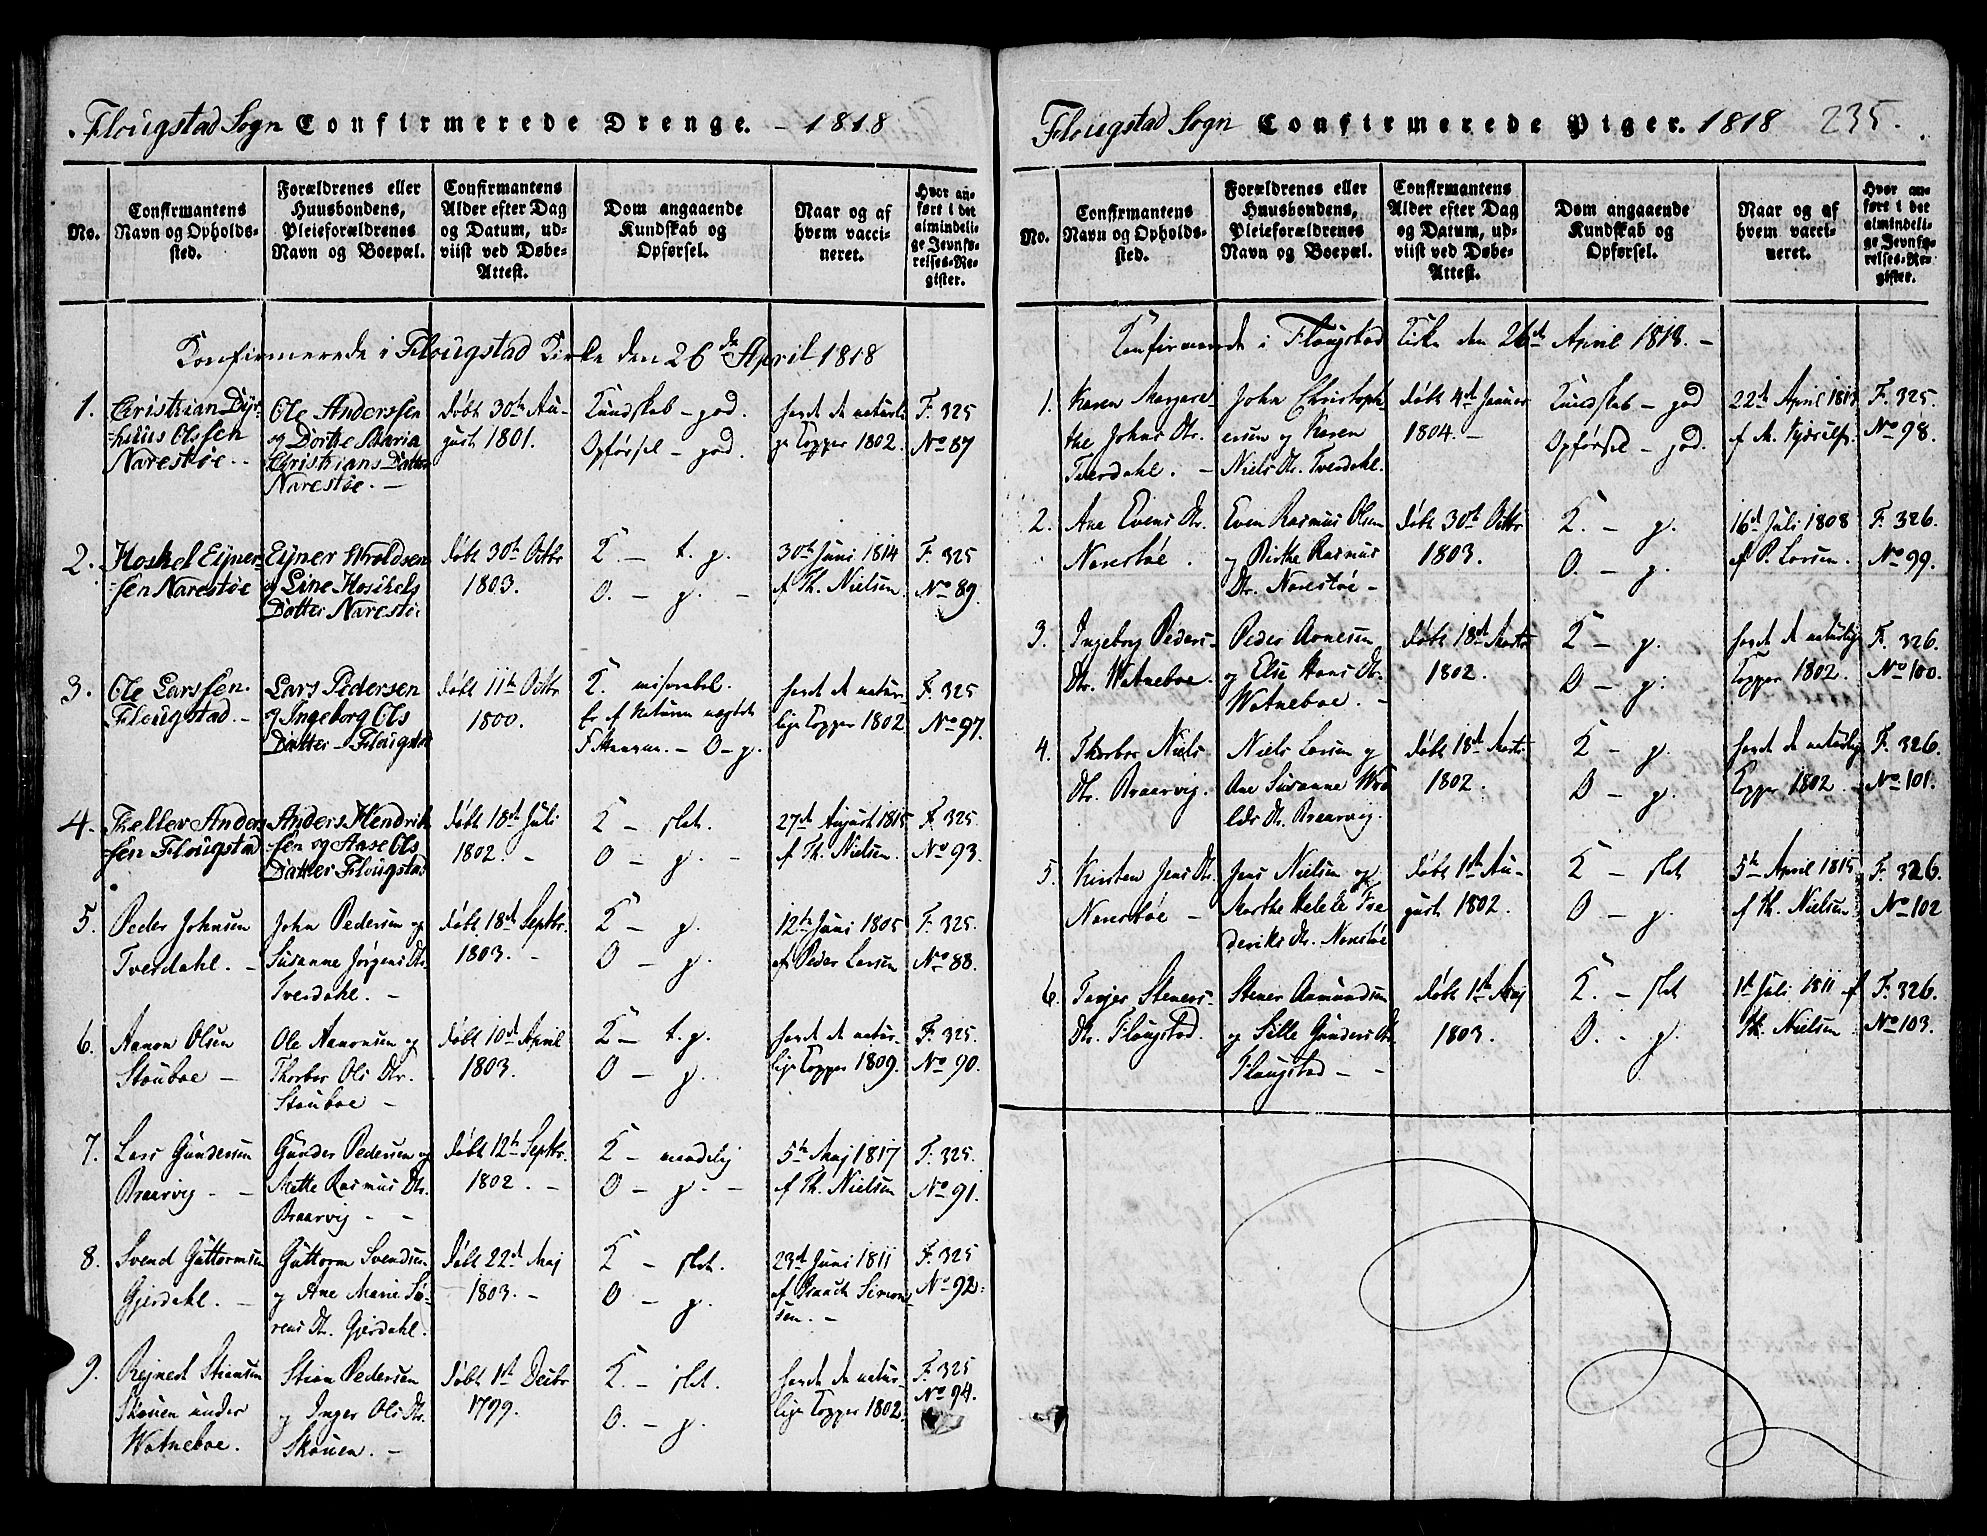 Flougstad Sogn Confirmerede Drenge. - 1818
No.
Confirmantens Navn og Opholds-sted.
Forældrenes eller Huusbondens, Pleieforældrenes Navn og Boepæl.
Confirmantens Alder efter Dag og Datum, ud-viist ved Døbe-Attest.
Dom angaaende Kundskab og Opførsel.
Naar og af hvem vacci-neret.
Hvor an-ført i det almindeli-ge Jevnfø-relses-Re-gister.
Konfirmerede i Flougstad Kirke den 26de April 1818
1. Christian Dyr-
-huus Olsen
Narestøe. -
Ole Anderssen
og Dorthe Maria
Christians Datter
Narestøe. -
døbt 30th Au-
gust 1801.
Kundskab - god.
Opførsel - god.
havt de naturli-
ge Kopper 1802.
F. 325
No 87
2. Hoskel Eyner-
-sen Narestøe
Eyner Wroldsen
og Line Hoskels
Datter Narestøe
døbt 30th Octbr
1803.
K - t. g.
O. - g. -
30th Juni 1814
af Th. Nielsen.
F. 325
No 89.
3. Ole Larssen.
Flougstad. -
Lars Pedersen
og Ingeborg Ols
Datter - Flougstad
døbt 11th Octbr
1800.
K. miserabel.
er af Naturen negtede
- O - g.
havt de natur-
lige Kopper 1802
F. 325
No 97.
4. Theller Anders
sen Flougstad
Anders Hendrik
-sen og Aase Ols
Datter Flougstad
døbt 18d Juli
1802. -
K - slet.
O - g. -
27d August 1815
af Th. Nielsen.
F. 325.
No 93.
5. Peder Johnsen
Tverdahl. -
John Pedersen og
Susanne Jørgens Dtr.
Tverdahl. -
døbt 18d Septbr.
1803. -
K - g.
O - g.
12th Juni 1805
af Peder Larsen
F. 325.
No 88.
6. Aanon Olsen
Stouboe -
Ole Aanonsen og
Thorbor Ols Dtr.
Stouboe -
døbt 10d April
1803.
K - t. g.
O - g.
havt de natur-
lige Kopper 1809.
F. 325.
No 90.
7. Lars Gundersen
Braarvig - -
Gunder Pedersen og
Mette Rasmus Dtr.
Braarvig - -
døbt 12th Septbr.
1802. -
K - maadelig
O - g. -
5th Maj 1817
af Th. Nielsen
F. 325.
No 91.
8. Svend Guttormsen
Gjerdahl. -
Guttorm Svendsen
og Ane Marie Sø-
rens Dtr. Gjerdahl.
døbt 22d Maj
1803. -
K - slet.
O - g.
23d Juni 1811
af Simon-
sen. -
F. 325
No 92.
9. Rejnert Stiansen
Skouen under
Watneboe.
Stian Pedersen
og Inger Ols Dtr.
Skouen. -
døbt 1st Decbr
1799.
K. - slet.
O. - g.
havt de natur-
lige Kopper 1802.
F. 325
No 94.
Flougstad Sogn Confirmerede Piger. 1818 235.
No.
Confirmantens Navn og Opholds-sted.
Forældrenes eller Huusbondens, Pleieforældrenes Navn og Boepæl.
Confirmantens Alder efter Dag og Datum, ud-viist ved Døbe-Attest.
Dom angaaende Kundskab og Opførsel.
Naar og af hvem vacci-neret.
Hvor an-ført i det almindeli-ge Jevnfø-relses-Re-gister.
Confirmerede i Flougstad Kirke den 26d April 1818. -
1. Karen Margare-
the Johns Dtr.
Tverdahl. -
John Christoph-
ersen og Karen
Niels Dtr. Tverdahl.
døbt 4d Januar
1804. -
Kundskab - god
Opførsel - god.
22d April 1813
F. 325.
No 98.
2. Ane Evens Dtr.
Narestøe .
Even Rasmus Olsen
og Birthe Rasmus
Dtr. Narestøe -
døbt 30th Octbr
1803.
K. - g.
O. - g.
16d Juli 1808
af P. Larsen.
F. 326.
No 99.
3. Ingeborg Peders-
Dtr. Watneboe. -
Peder Arnesen
og Else Hans Dtr.
Watneboe. -
døbt 18d Marts
1802.
K - g.
O - g.
havt de naturlig
Kopper 1802.
F. 326.
No 100.
4. Thorbor Niels
Dtr. Braarvig.
Niels Larsen og
Ane Susanne Wro
lds Dtr. Braarvig.
døbt 18d Marts
1802.
K - g.
O - g.
havt de naturlig
Kopper 1802.
F. 326.
No 101.
5. Kirsten Jens Dtr.
Narestøe -
Jens Nielsen og
Marthe Helele Fre
deriks Dtr. Narestøe
døbt 1st Au-
gust 1802.
K - slet
O - g.
5th April 1815
af Th. Nielsen
F. 326.
No 102
6. Tarjer Steners-
Dtr. Flougstad.
Stener Aamundsen
og Sille Gunders Dtr.
Flougstad - -
døbt 1st Maj
1803.
K. - slet
O. - g.
1st Juli 1811 af
Th. Nielsen
F. 326.
No 103.